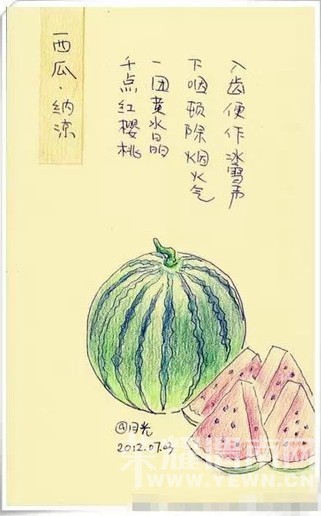 西瓜·纳凉
千点红樱桃
一团黄水晶
下咽顿除烟火气
入齿便作冰雪声
@月光
2012.07.03
WWW.YEWN.CN